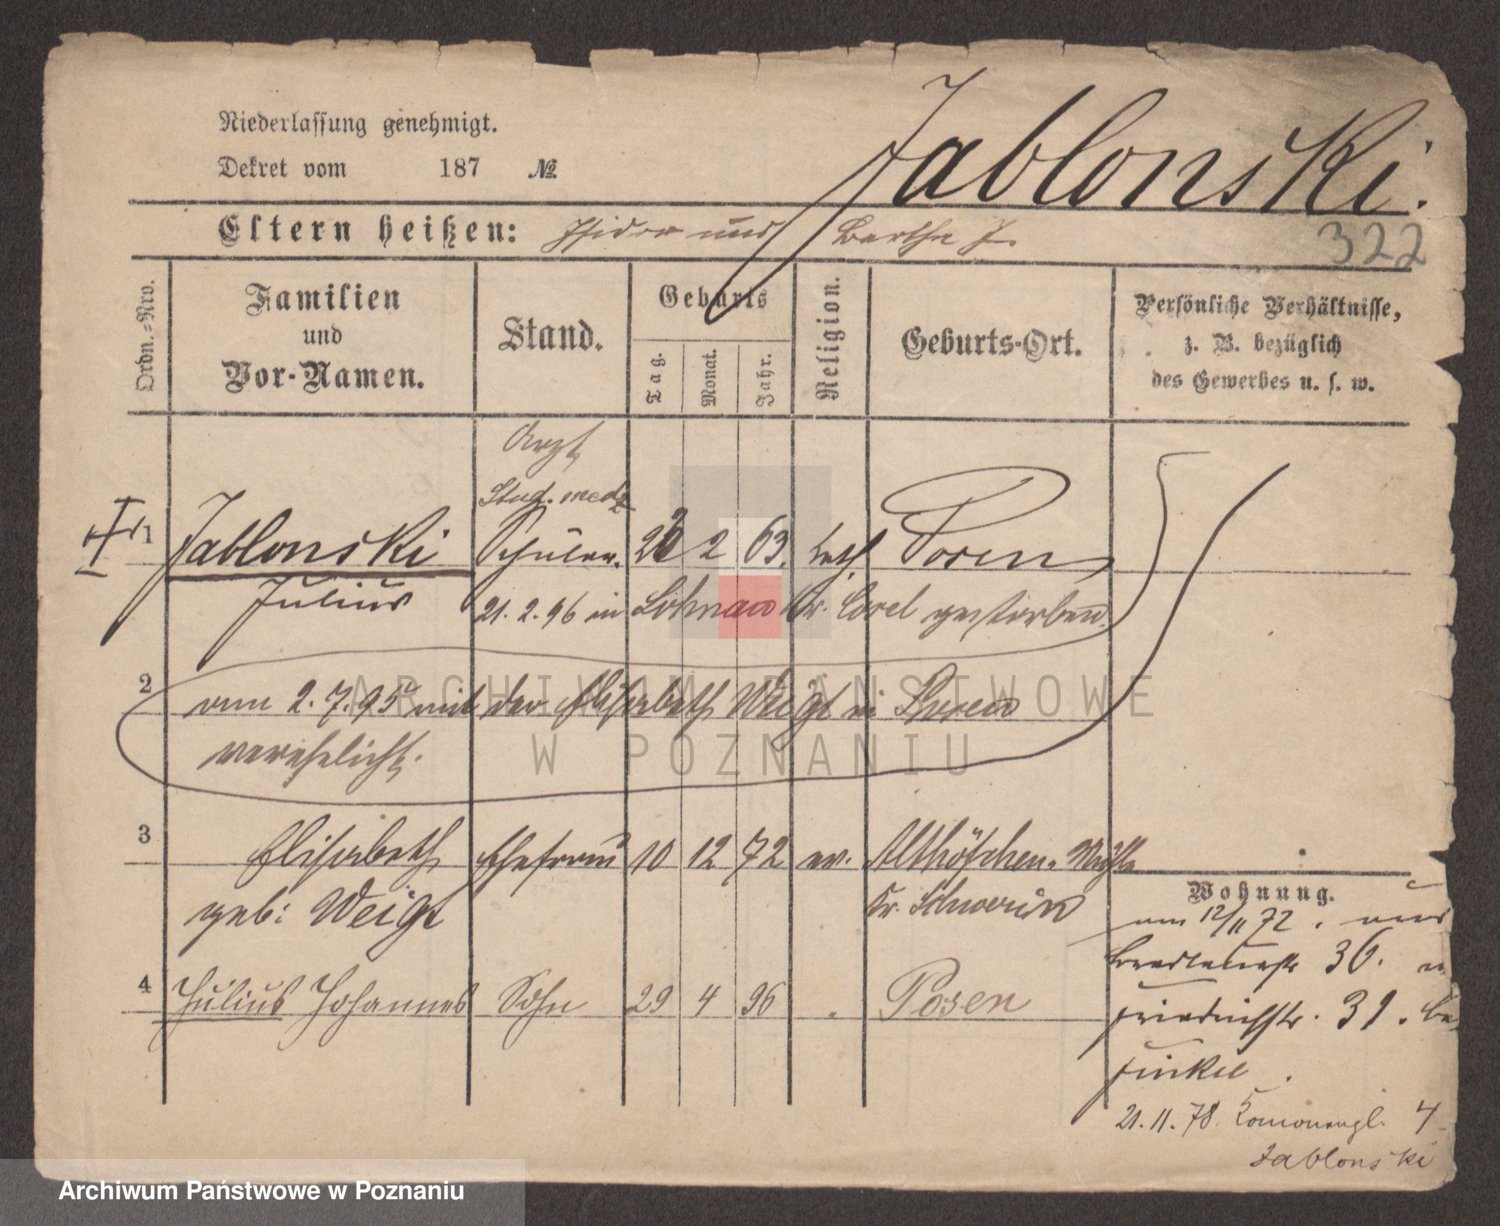 Niederlassung genehmigt.
Dekret vom 187 №
Jablonski.
Eltern heißen: Isidor und Bertha J.
322
Ordn.-Nro.
Familien
und
Vor-Namen.
Stand.
Geburts
Tag.
Monat.
Jahr.
Religion.
Geburts-Ort.
Persönliche Verhältnisse,
z. B. bezüglich
des Gewerbes u. s. w.
Arzt
Stud. med.
1 Jablonski Schüler. 2 63. Posen
Julius 21.2.96 in Kr. Cosel gestorben.
2 am 2.7.95 mit der Elisabeth Weigt in Posen
verehelicht.
3 Elisabeth Ehefrau 10 12 72 ev. Althöfchen-Mühle
geb: Weigt Kr. Schwerin
4 Julius Johannes Sohn 29 4 96 Posen
Wohnung.
am 12/11 72. aus
36.
Friedrichstr. 31. be
Finkel.
21.11.78. 4
Jablonski
ARCHIWUM PAŃSTWOWE
W POZNANIU
Archiwum Państwowe w Poznaniu